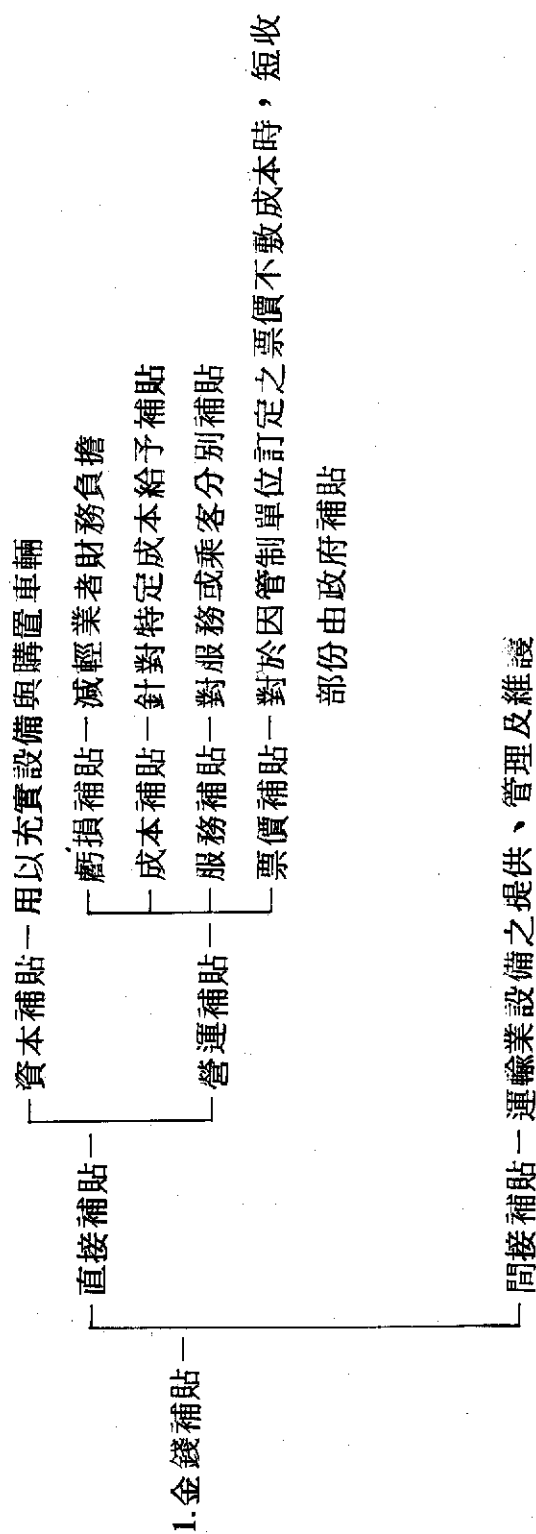 1.金錢補貼
直接補貼
資本補貼—用以充實設備與購置車輛
營運補貼
虧損補貼—減輕業者財務負擔
成本補貼—針對特定成本給予補貼
服務補貼—對服務或乘客分別補貼
票價補貼—對於因管制單位訂定之票價不敷成本時，短收
部份由政府補貼
間接補貼—運輸業設備之提供、管理及維護